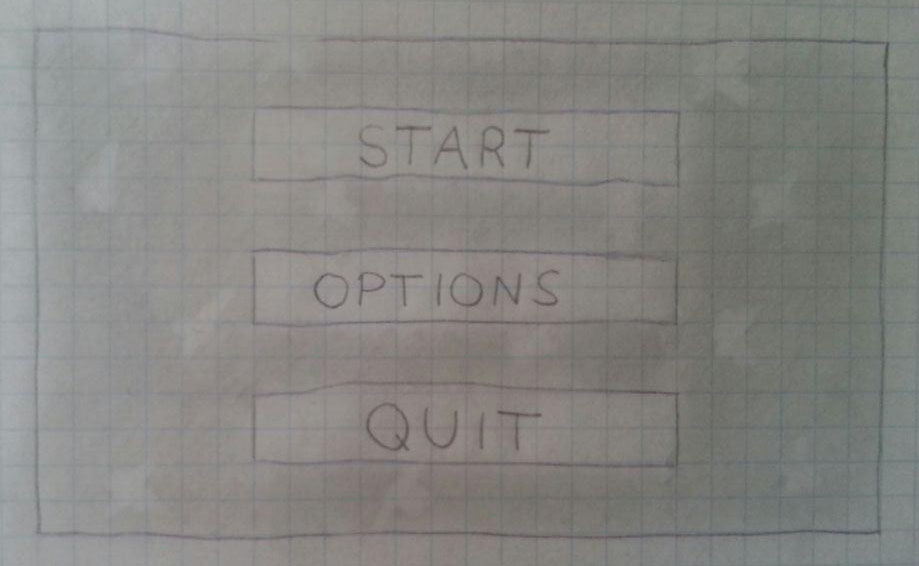 START
OPTIONS
QUIT